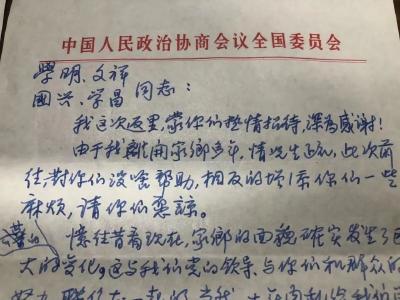 中国人民政治协商会议全国委员会
學明、文祥
國兴、学昌 同志：
我这次返里，蒙你们热情招待，深为感谢！
由于我離闹家鄉多年，情况生疏，此次前
往，對你们没啥帮助，相反的增添你们一些
麻烦，请你们惠諒。
憶往昔看现在，家鄉的面貌確实发生了巨
大的变化。这与我们党的领导、与你们和群众的
努力